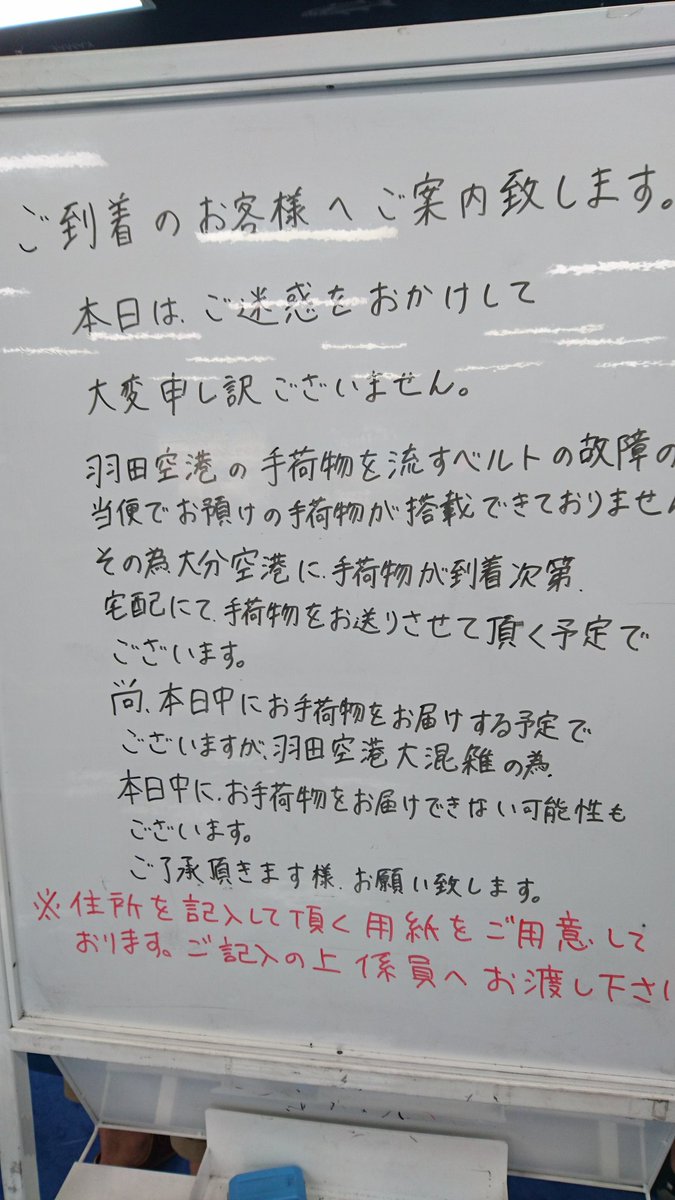 ご到着のお客様へご案内致します。
本日は、ご迷惑をおかけして
大変申し訳ございません。
羽田空港の手荷物を流すベルトの故障の
当便でお預けの手荷物が搭載できておりません
その為、大分空港に、手荷物が到着次第、
宅配にて、手荷物をお送りさせて頂く予定で
ございます。
尚、本日中にお手荷物をお届けする予定で
ございますが、羽田空港大混雑の為、
本日中に、お手荷物をお届けできない可能性も
ございます。
ご了承頂きます様、お願い致します。
※住所を記入して頂く用紙をご用意して
おります。ご記入の上係員へお渡し下さい